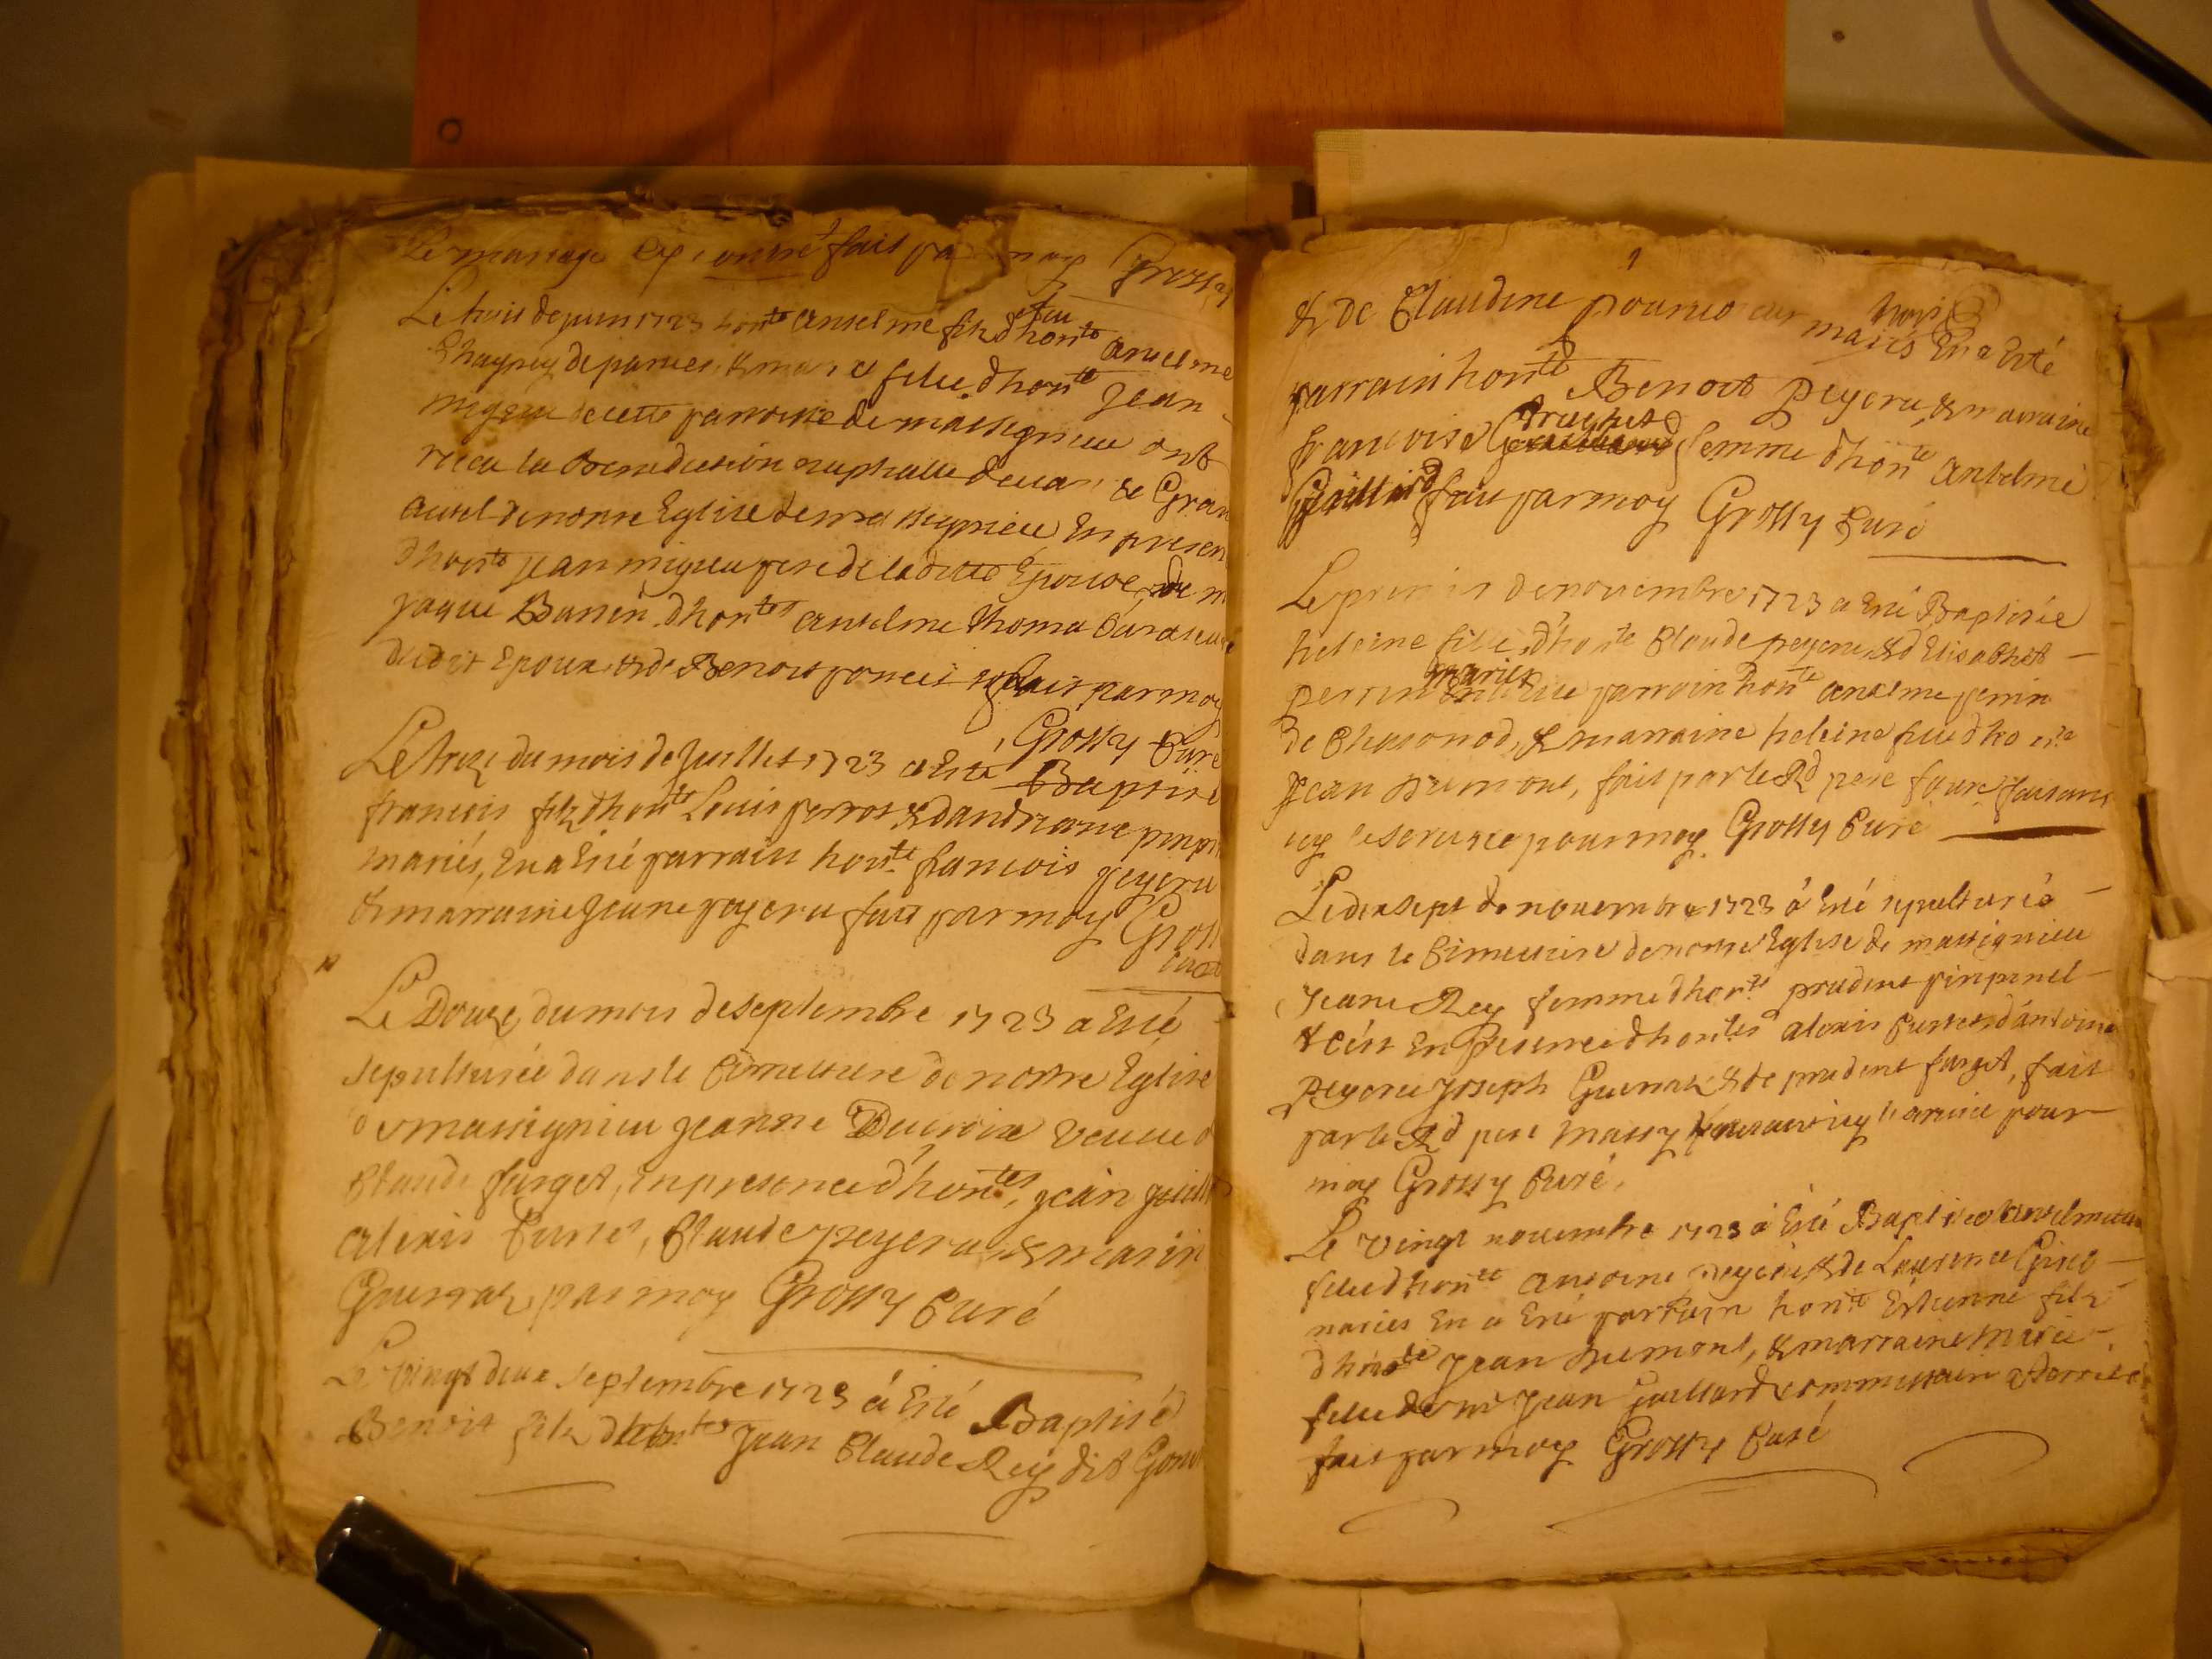 Le mariage cy contre fait pa moy Grossy
Le trois de juin 1723 honte Anselme filz d'feu honte Anselme
Chagney de parves, & filie d'honte Jean
migieu de cette parroisse de massignieu ont
receu la Benediction nuptialle devan le Gran
Autel de nostre Eglise de massignieu En presen
d'honte jean migieu pere de laditte Epouse, de
jaque Banein d'hontes anselme thoma
dudit Epoux, & de Benoit poncet fait par moy
Grossy Curé
Le treze du mois de Juillet 1723 a Esté Baptisé
francois filz d'honte Louis perrot & d'andreane pinpi
mariés, En a Esté parrain honte francois peyeru
& marraine Jeane peyeru fait par moy Gross
Curé
Le Douze du mois de septembre 1723 a Esté
sepulturée dans le Cimetiere de nostre Eglise
de massignieu jeanne Ducroix veuve d
Claude farget, En presence d'hontes jean
Alexis Curtet, Claude peyeru, & marin
Guerraz par moy Grossy Curé
Le vingt deux septembre 1723 a Esté Baptisé
Benoit filz d'honte Jean Claude Rey dit
& de Claudine mariés En a Esté
parrain honte Benoit peyeru, & marraine
francoise Trachet femme d'honte Antelme
Gaillard fait par moy Grossy Curé
Le premier de novembre 1723 a Esté Baptisée
heleine filie d'honte Claude peyeru, & d'Elisabhet
perrin mariés parrain honte anselme perrin
de Chasonod, & marraine heleine filie d'honte
Jean Dumont, fait par le Rd pere faisant
icy le service pour moy Grossy Curé
Le dixsept de novembre 1723 a Esté sepulturée
dans le Cimettiere de nostre Eglise de massignieu
Jeane Rey femme d'honte prudent pinpinel
& c'est En presence d'hontes alexis Curtet, d'antoine
Peyeru Joseph Guerraz & de prudent farget, fait
par le Rd pere massy faisant icy le service pour
moy Grossy Curé
Le vingt novembre 1723 a Esté Baptisée
filie d'honte antoine peyeru & de Laurence
mariés En a Esté parrain honte Estienne filz
d'honte Jean Dumont, & marraine marie
filie de mr Jean Gaillard commissaire
fait par moy Grossy Curé